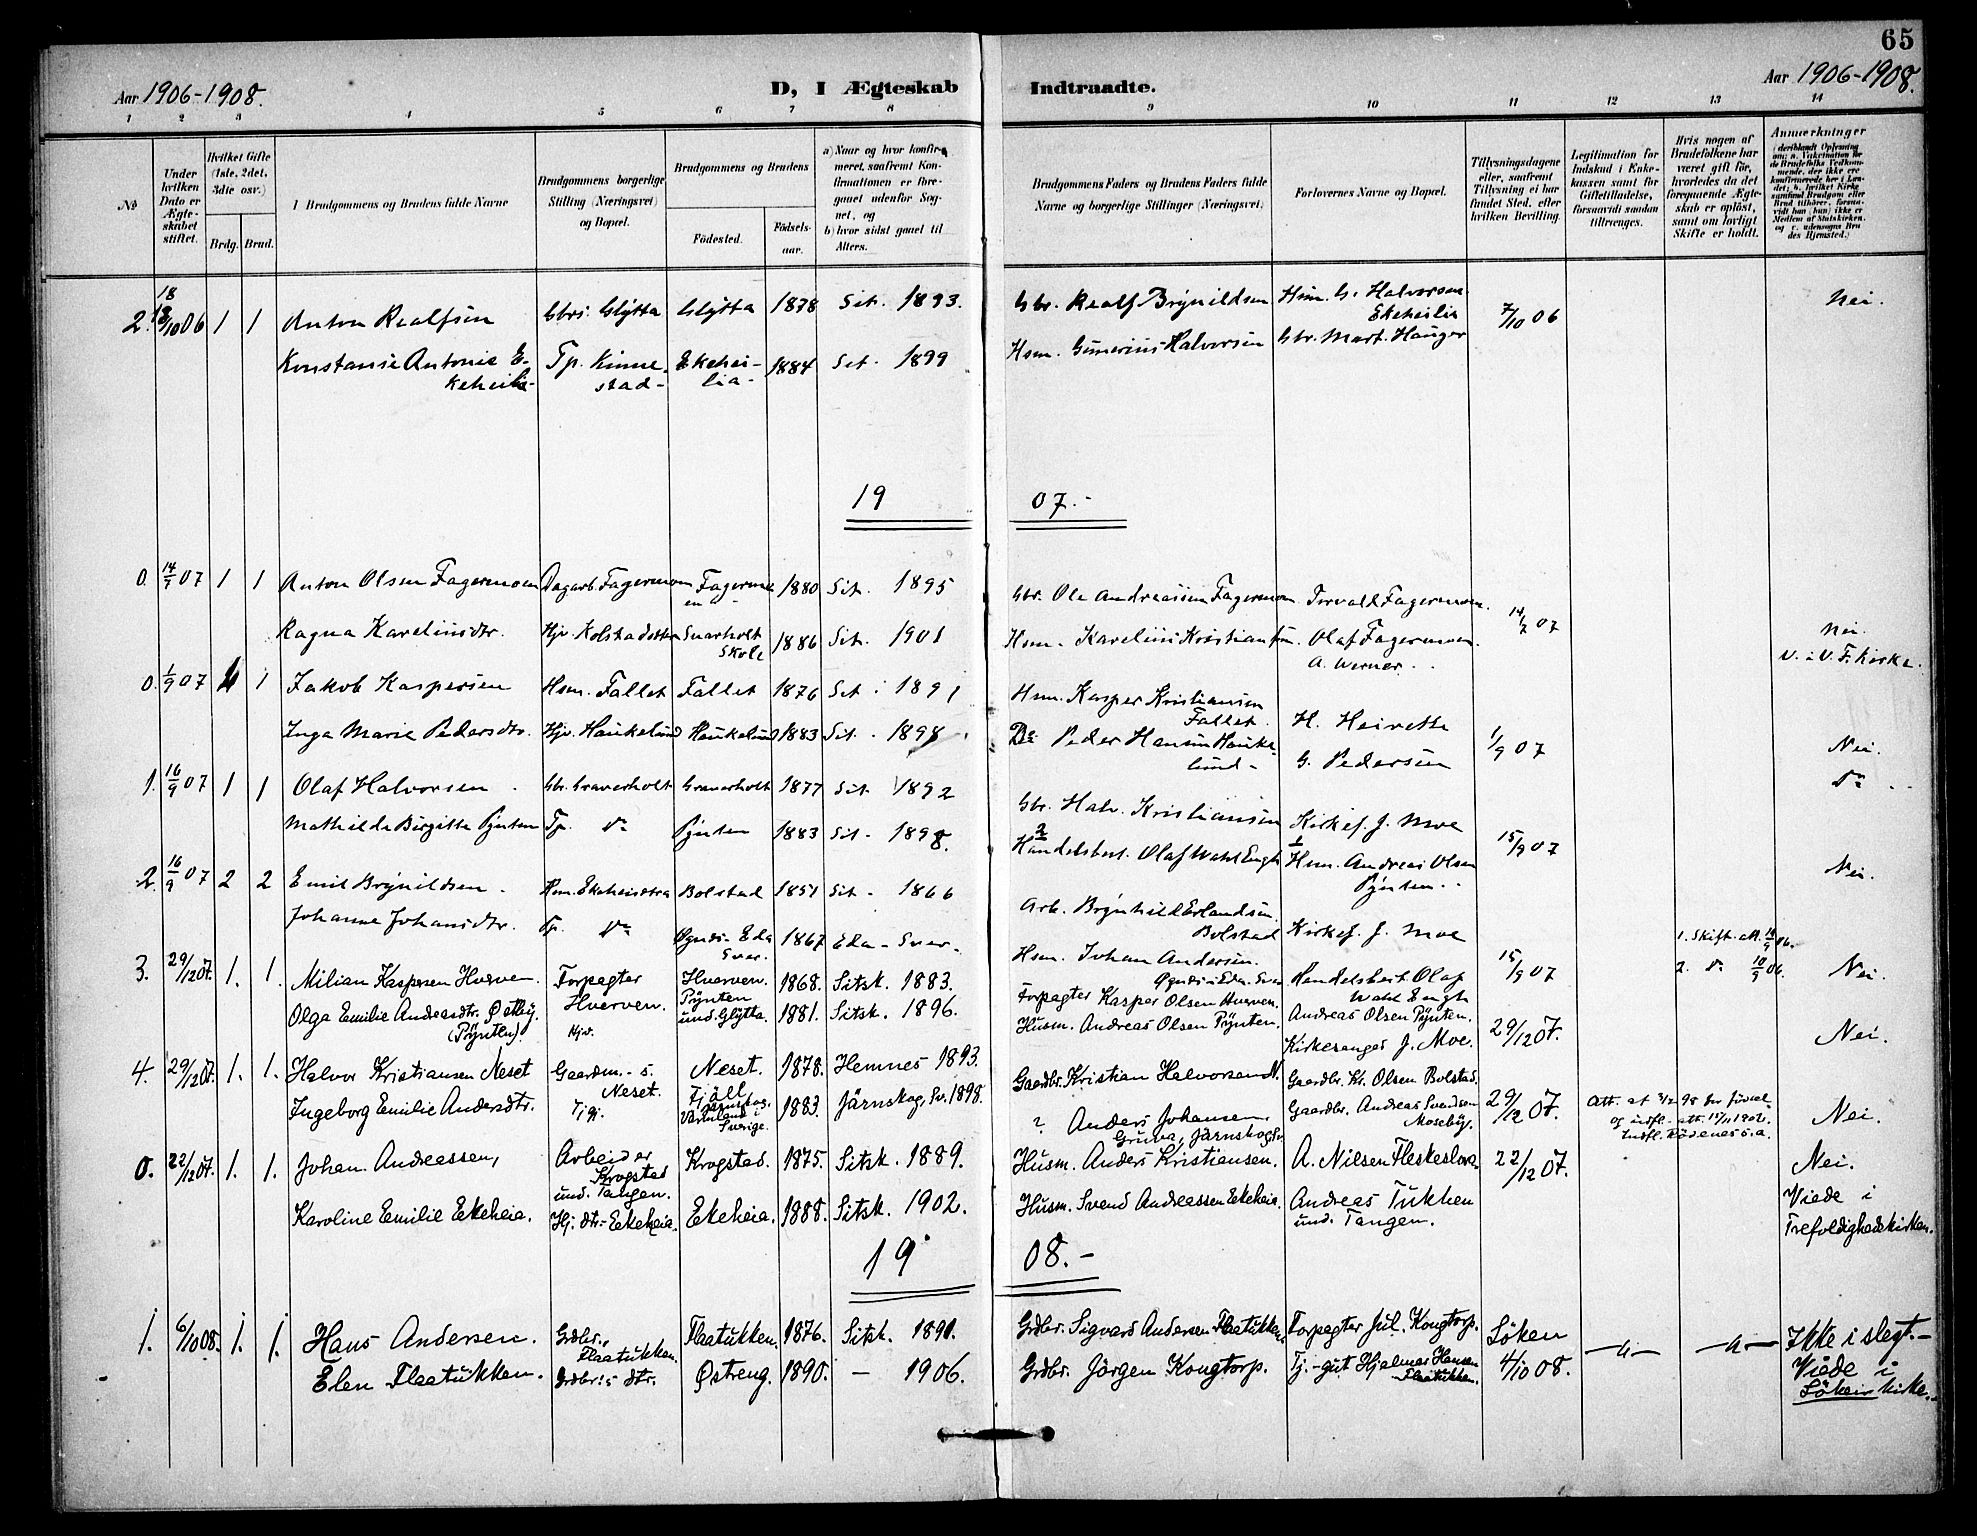 65
Aar 1906-1908.
D, I Ægteskab Indtraadte.
Aar 1906-1908.
1 2 3 4 5 6 7 8 9 10 11 12 13 14
No
Under hvilken Dato er Ægteskabet stiftet.
Hvilket Gifte (1ste, 2det, 3die osv.)
Brdg. Brud.
Brudgommens og Brudens fulde Navne
Brudgommens borgerlige Stilling (Næringsvei) og Bopæl.
Brudgommens og Brudens
Fødested.
Fødselsaar.
a) Naar og hvor konfirmeret, saafremt Konfirmationen er foregaaet udenfor Sognet, og
b) hvor sidst gaaet til Alters.
Brudgommens Faders og Brudens Faders fulde Navne og borgerlige Stillinger (Næringsvei)
Forlovernes Navne og Bopæl.
Tillysningsdagene eller, saafremt Tillysning ei har fundet Sted, efter hvilken Bevilling.
Legitimation for Indskud i Enkekassen samt for Giftetilladelse, forsaavidt saadan tiltrænges.
Hvis nogen af Brudefolkene har været gift før, hvorledes da det foregaaende Ægteskab er opløst, samt om lovligt Skifte er holdt.
Anmærkninger
2. 18/10 06 1 1 Anton Realfsen Gbrs. Glytta Glytta 1878 Sit. 1893. Gbr. Realf Brynildsen Hsm. G. Halvorsen Ekeheilia 7/10 06 Nei.
Konstanse Antonie Ekeheilia Tp. Kinnestad Ekeheilia 1884 Sit. 1899 Hsm. Gunerius Halvorsen Gbr. Mart. Hauger
1907.-
0. 14/7 07 1 1 Anton Olsen Fagermoen Dagarb. Fagermoen Fagermoen 1880 Sit. 1895 Gbr. Ole Andreassen Fagermoen Torvald Fagermoen. 14/7 07 Nei.
Ragna Karelinsdtr. Hjv. Kolstadsetra Svarholt Skole 1886 Sit. 1901 Hsm. Karelius Kristiansen. Olaf Fagermoen. A. Werner V. i V. F. Kirke.
0. 1/9 07 1 1 Jakob Kaspersen Hsm. Fallet Fallet 1876 Sit. 1891 Hsm. Kasper Kristiansen Fallet. H. Heiretta 1/9 07 Nei.
Inga Marie Pedersdtr. Hjv. Haukelund Haukelund 1883 Sit. 1898 Peder Hansen Haukelund G. Pedersen Do
1. 16/9 07 1 1 Olaf Halvorsen Gbr. Graverholt Graverholt 1877 Sit. 1892 Gbr. Halv. Kristiansen Kirkes. J. Moe 15/9 07 Nei.
Mathilde Birgitte Pynten Tp. Do Pynten 1883 Sit. 1898. Handelsbest. Olaf Wahl Engh Hsm. Andreas Olsen Pynten
2. 16/9 07 2 2 Emil Brynildsen Hsm. Ekeheisetra Bolstad 1851 Sit. 1866 Arb. Brynhild Erlandsen Bolstad Kirkes. J. Moe 15/9 07 1. Skift. att. 06. Nei.
Johanne Johansdtr. Tp. Do Eda Sver. 1867 Eda - Sver. Hsm. Johan Andersen Handelsbest. Olaf Wahl Engh 2. Do 10/9 06.
3. 29/12 07. 1. 1. Milian Kaspersen Hverven Forpagter Hverven. Hverven. 1868. Sitsk. 1883. Forpagter Kasper Olsen Hverven. Andreas Olsen Pynten. 29/12 07. Nei.
Olga Emilie Andersdtr. Østby. (Pynten) Hjv. Pynten und. Glytta. 1881. Sitsk. 1896. Husm. Andreas Olsen Pynten. Kirkesanger J. Moe.
4. 29/12 07. 1. 1. Halvor Kristiansen Neset Gaardm.-s. Neset. Neset. 1878. Hemnes 1893. Gaardbr. Kristian Halvorsen N. Gaardbr. Kr. Olsen Bolstad. 29/12 07. Nei.
Ingeborg Emilie Andersdtr. Tjg. Fjäll Järnskog. Värmland i Sverige. 1883. Järnskog, Sv. 1898. ? Anders Johansen Gruva, Järnskog Sv. Gaardbr. Andreas Svendsen Moseby.
0. 22/12 07. 1. 1. Johan Andreassen, Arbeider Krogstad und. Tangen. Krogstad. 1875. Sitsk. 1889. Husm. Anders Kristiansen. A. Nilsen Fleskeslora 22/12 07. Nei.
Karoline Emilie Eekeheia. Hj. dtr. Eekeheia. Ekeheia. 1888. Sitsk. 1902. Husm. Svend Andreassen Eekeheia Andreas Tukken und. Tangen. Viede i Trefoldighedskirken.
1908.-
1. 6/10 08. 1. 1. Hans Andersen. Grdbr. Flaatukken. Flaatukken. 1876. Sitsk. 1891. Grdbr. Sigvard Andersen Flaatukken. Forpagter Jul. Kongtorp. Löken 4/10 08. -"- -"- Ikke i slegt.-
Elen Flaatukken. Grdbr.s dtr. Østreng. 1890. - 1906. Grdbr. Jörgen Kongtorp. Tj.-gut Hjalmar Hansen Flaatukken. Viede i Löken kirke.